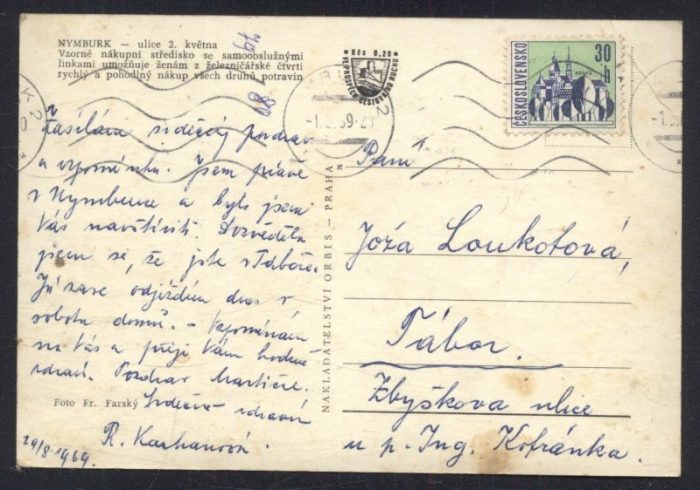 NYMBURK — ulice 2. května
Vzorné nákupní středisko se samoobslužnými
linkami umožňuje ženám z železničářské čtvrti
rychlý a pohodlný nákup všech druhů potravin
Kčs 0,20
ČESKOSLOVENSKO
30
h
Zasílám srdečný pozdrav
a vzpomínku. Jsem právě
v Nymburce a byla jsem
Vás navštíviti. Dozvěděla
jsem se, že jste v Táboře.
Já zase odjíždím dnes v
sobotu domů. – Vzpomínám
na Vás a přeji Vám hodně
zdraví. Pozdrav Martičce.
Srdečně zdraví
R. Karhanová
29/8 1969.
Foto Fr. Farský
NAKLADATELSTVÍ ORBIS — PRAHA
Paní
Jóža Loukotová,
Tábor.
Zbyškova ulice
u p. Ing. Kofránka.